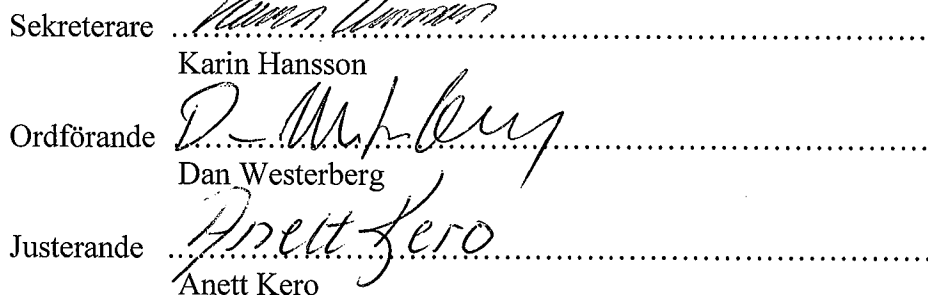 Sekreterare ..........
Karin Hansson
Ordförande D Westerberg ..........
Dan Westerberg
Justerande Anett Kero ..........
Anett Kero